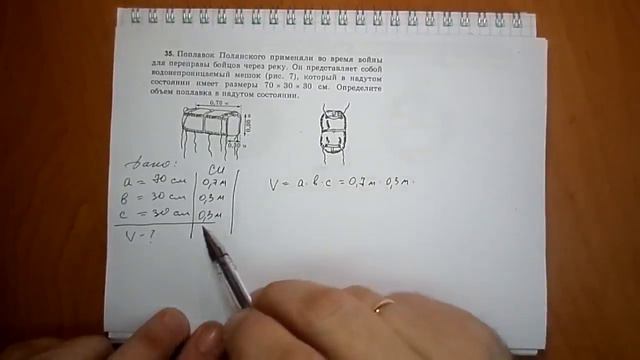 35. Поплавок Полянского применяли во время войны
для переправы бойцов через реку. Он представляет собой
водонепроницаемый мешок (рис. 7), который в надутом
состоянии имеет размеры 70 × 30 × 30 см. Определите
объем поплавка в надутом состоянии.
0,70 м
0,30 м
0,30 м
Дано:
СИ
a = 70 см 0,7 м
в = 30 см 0,3 м
c = 30 см 0,3 м
V - ?
V = a · в · c = 0,7 м · 0,3 м ·